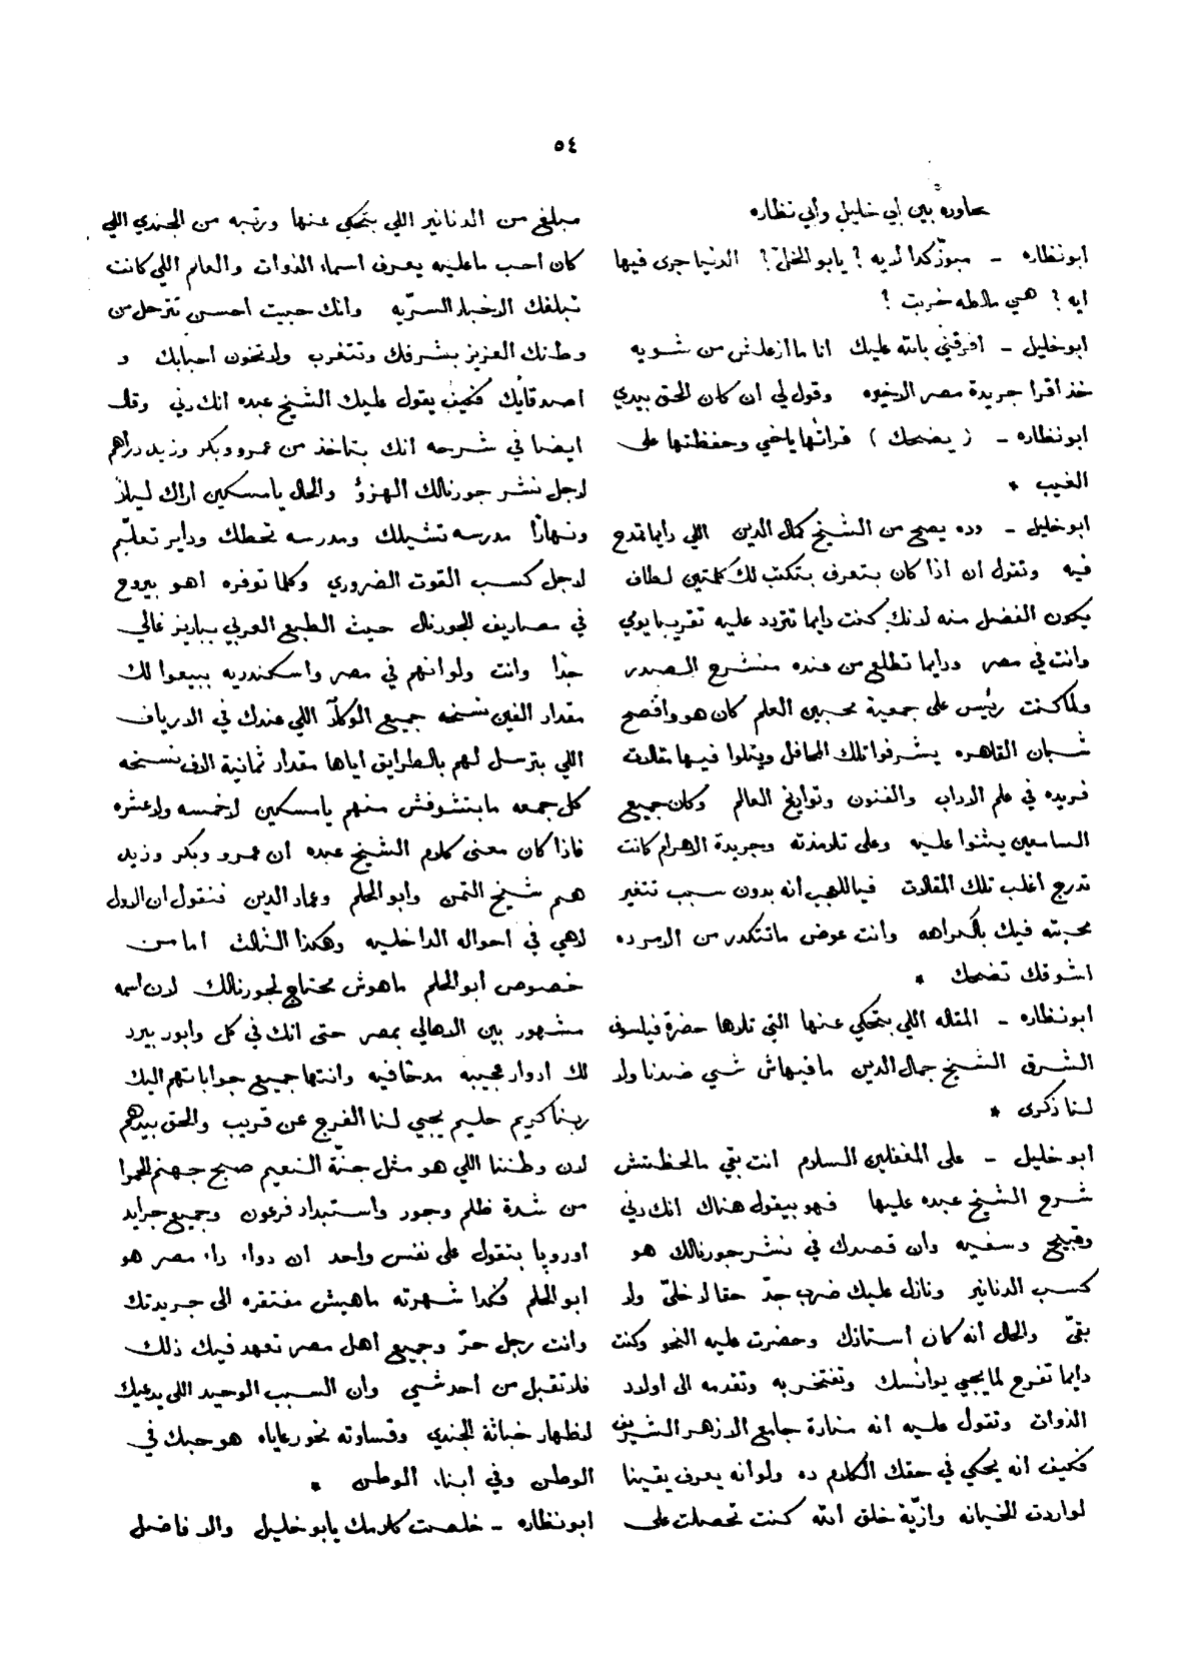 ٥٤
محاورة بين أبي خليل وأبي نظاره
ابونظاره ـ مبوّز كدا ليه ؟ يابو الخلّ ؟ الدنيا جرى فيها
ايه ؟ هي مالطه خربت ؟
ابوخليل ـ افرقني بالله عليك انا ما ازعلش من شويه
خذ اقرا جريدة مصر الاخيره وقول لي ان كان الحق بيدي
ابونظاره ـ ( يضحك ) قرأتها ياخي وحفظتها على
الغيب *
ابوخليل ـ وده يصح من الشيخ كمال الدين اللي دايما تمدح
فيه وتقول ان اذا كان بتعرف بتكتب لك كلمتين لطاف
يكون الفضل منه لانك كنت دايما تتردد عليه تقريبا يومي
وانت في مصر ودايما تطلع من عنده منشرح الصدر
ولما كنت رئيس على جمعية محبين العلم كان هو وافصح
شبان القاهره يشرفوا تلك المحافل ويتلوا فيها مقالات
فريده في علم الاداب والفنون وتواريخ العالم وكان جميع
السامعين يثنوا عليه وعلى تلامذته وجريدة الاهرام كانت
تدرج اغلب تلك المقالات فياللعجب انه بدون سبب تتغير
محبته فيك بالكراهه وانت عوض ما تتكدر من الامر ده
اشوفك تضحك *
ابونظاره ـ المقاله اللي بتحكي عنها التي تلاها حضرة فيلسوف
الشرق الشيخ جمال الدين ما فيهاش شي ضدنا ولا
لنا ذكرى *
ابوخليل ـ على المغفلين السلام انت بقي مالحظتش
شرح الشيخ عبده عليها فهو بيقول هناك انك دني
وقبيح وسفيه وان قصدك في نشر جورنالك هو
كسب الدنانير ونازل عليك ضرب جدّ حقا لا خلّى ولا
بقّى والحال انه كان أستاذك وحضرت عليه النحو وكنت
دايما تفرح لما يجي يوانسك وتفتخر به وتقدمه الى اولاد
الذوات وتقول عليه انه منارة جامع الازهر الشريف
فكيف انه يحكي في حقك الكلام ده ولوانه يعرف يقينا
لواردت الخيانه واذيّة خلق الله كنت تحصلت على
مبلغ من الدنانير اللي بتحكي عنها ورتبه من الجندي اللي
كان احب ما عليه يعرف اسماء الذوات والعالم اللي كانت
تبلغك الاخبار السرّيه وانك حبيت احسن تترحل من
وطنك العزيز بشرفك وتتغرب ولا تخون احبابك و
اصدقايك فكيف يقول عليك الشيخ عبده انك دني وقال
ايضا في شرحه انك بتاخذ من عمرو وبكر وزيد دراهم
لاجل نشر جورنالك الهزؤ والحال يا مسكين اراك ليلاً
ونهاراً مدرسه تشيلك ومدرسه تحطك وداير تعلّم
لاجل كسب القوت الضروري وكلما توفره اهو بيروح
في مصاريف الجورنال حيث الطبع العربي بباريز غالي
جدّا وانت ولوانهم في مصر واسكندريه يبيعوا لك
مقدار الفين نسخه جميع الوكلآ اللي عندك في الارياف
اللي بترسل لهم بالطرايق اياها مقدار ثمانية الاف نسخه
كل جمعه ما بتشوفش منهم يا مسكين لا خمسه ولا عشره
فاذا كان معنى كلام الشيخ عبده أن عمرو وبكر وزيد
هم شيخ التمن وابو الحلم وعماد الدين فنقول ان الاول
لاهي في احواله الداخليه وهكذا الثالث اما من
خصوص أبو الحلم ماهوش محتاج لجورنالك لان اسمه
مشهور بين الاهالي بمصر حتى انك في كل وابور بيرد
لك ادوار عجيبه مدحًا فيه وانتها جميع جواباتهم اليك
ربنا كريم حليم يجي لنا الفرج عن قريب والحق بيدهم
لان وطننا اللي هو مثل جنّة النعيم صبح جهنم الحمرا
من شدة ظلم وجور واستبداد فرعون وجميع جرايد
اوروپا بتقول على نفس واحد ان دواء داء مصر هو
ابو الحلم فكدا شهرته ماهيش مفتقره الى جريدتك
وانت رجل حرّ وجميع أهل مصر تعهد فيك ذلك
فلا تقبل من أحد شي وان السبب الوحيد اللي يدعيك
لاظهار خباثة الجندي وقساوته نحو رعاياه هو حبك في
الوطن وفي ابناء الوطن *
ابونظاره ـ خلصت كلامك يابو خليل والا فاضل